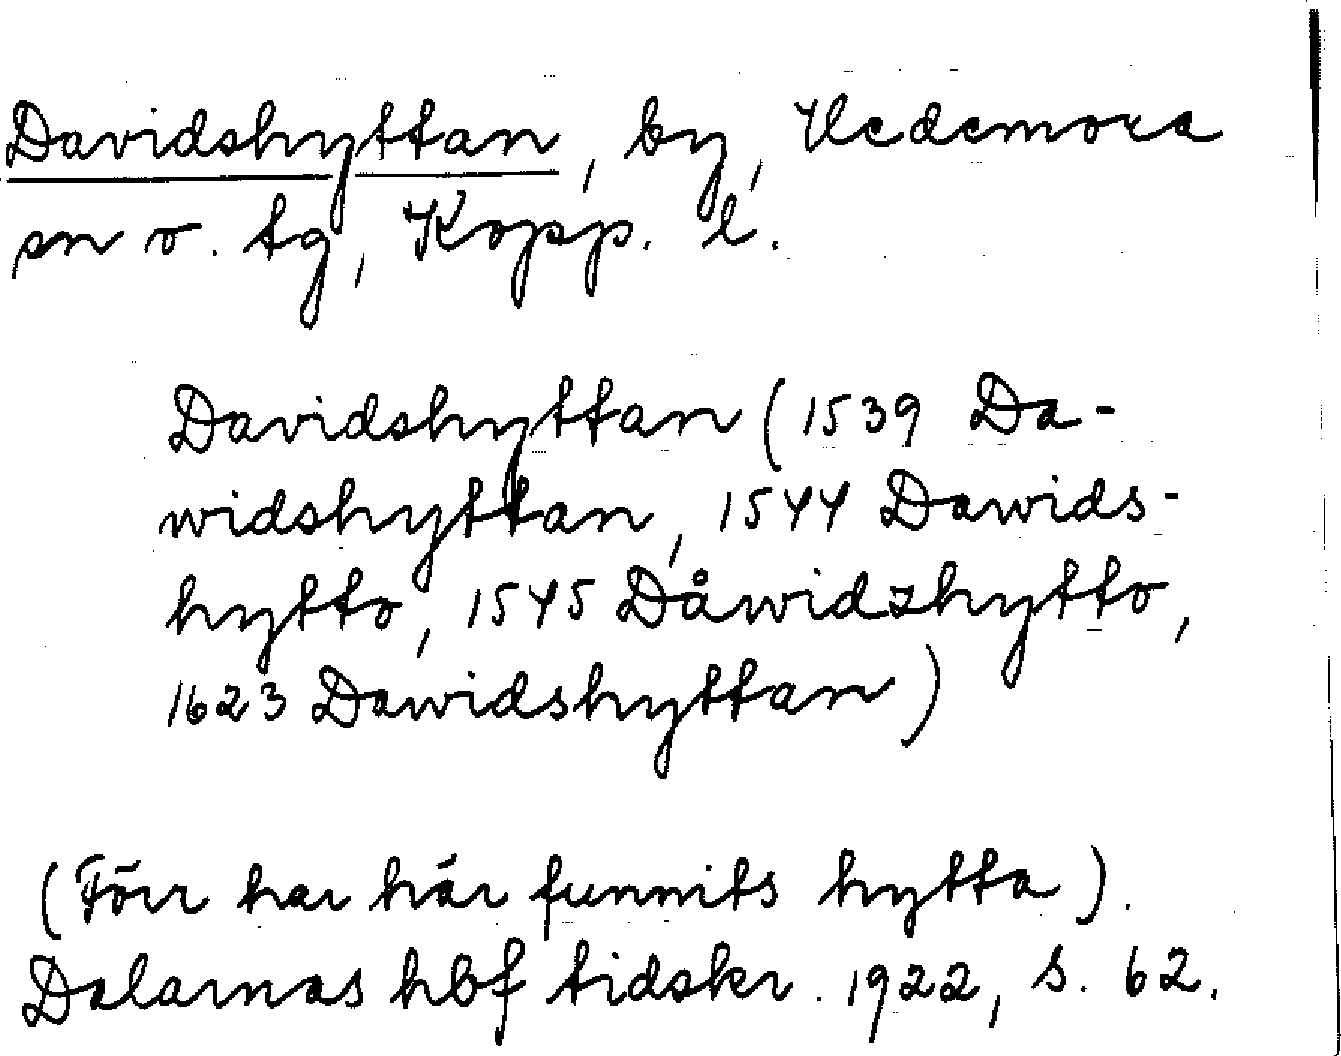 Davidshyttan, by, Vedemora
sn o. tg, Kopp. l.
Davidshyttan (1539 Da-
widshyttan, 1544 Dawids-
hytto, 1545 Dåwidzhytto,
1623 Dawidshyttan)
(Förr har här funnits hytta).
Dalarnas hbf tidskr. 1922, s. 62.